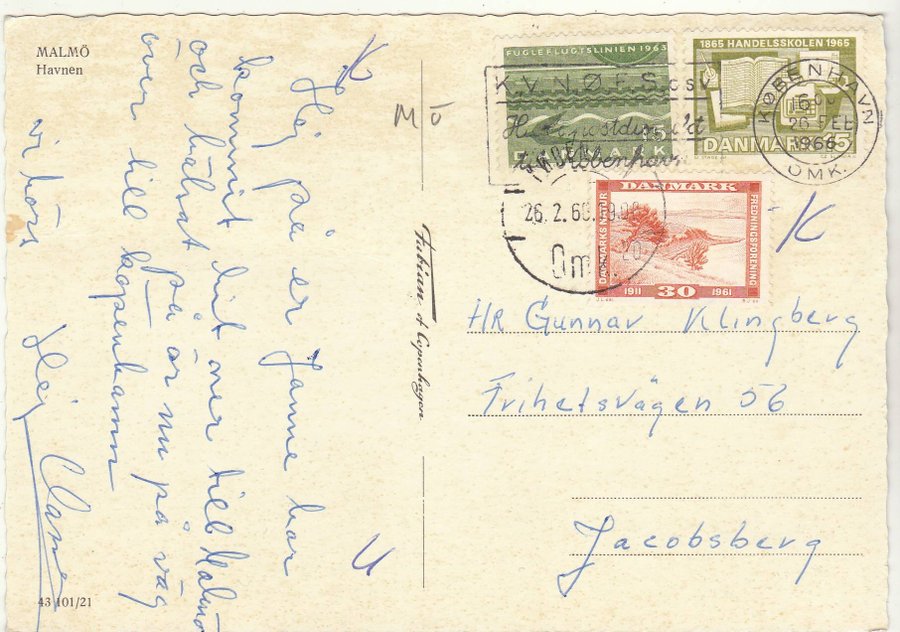 MALMÖ
Havnen
Hej på er Janne har
kommit hit över till Malmö
och hälsat på är nu på väg
över till köpenhamn
vi hörs
Hej
43 101/21
Fabian of Copenhagen
K
M Ö
U
FUGLEFLUGTSLINIEN 1963
15
DANMARK
1865 HANDELSSKOLEN 1965
DANMARK 25
KØBENHAVN
26 FEB
1966
OMK.
København
26.2.66
Om
DANMARK
DANMARKS NATUR
FREDNINGSFORENING
1911 30 1961
K
HR Gunnar Klingberg
Frihetsvägen 56
Jacobsberg